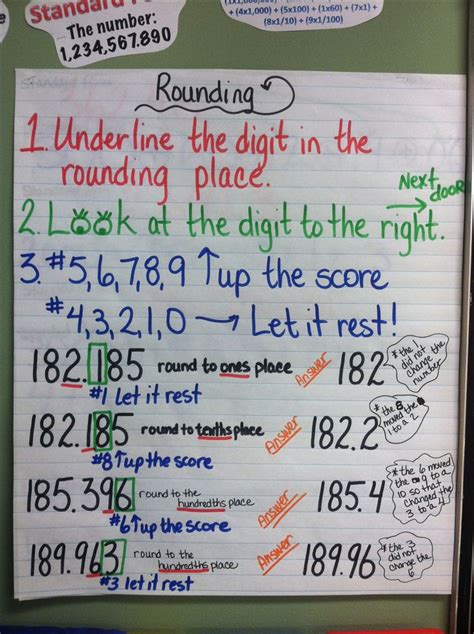 Standard
The number:
1,234,567,890
+ (4x1,000) + (5x100) + (1x60) + (7x1) +
(8x1/10) + (9x1/100)
Rounding
1. Underline the digit in the
rounding place.
Next door
2. Look at the digit to the right.
3. #5,6,7,8,9 ↑ up the score
#4,3,2,1,0 → Let it rest!
182.185 round to ones place Answer 182
#1 Let it rest
* the 1 did not change the number
182.185 round to tenths place Answer 182.2
#8 ↑ up the score
* the 8 moved the 1 to a 2
185.396 round to the hundredths place Answer 185.4
#6 ↑ up the score
* the 6 moved the 9 to a 10 so that changed the 3 to a 4
189.963 round to the hundredths place Answer 189.96
#3 let it rest
* the 3 did not change the 6